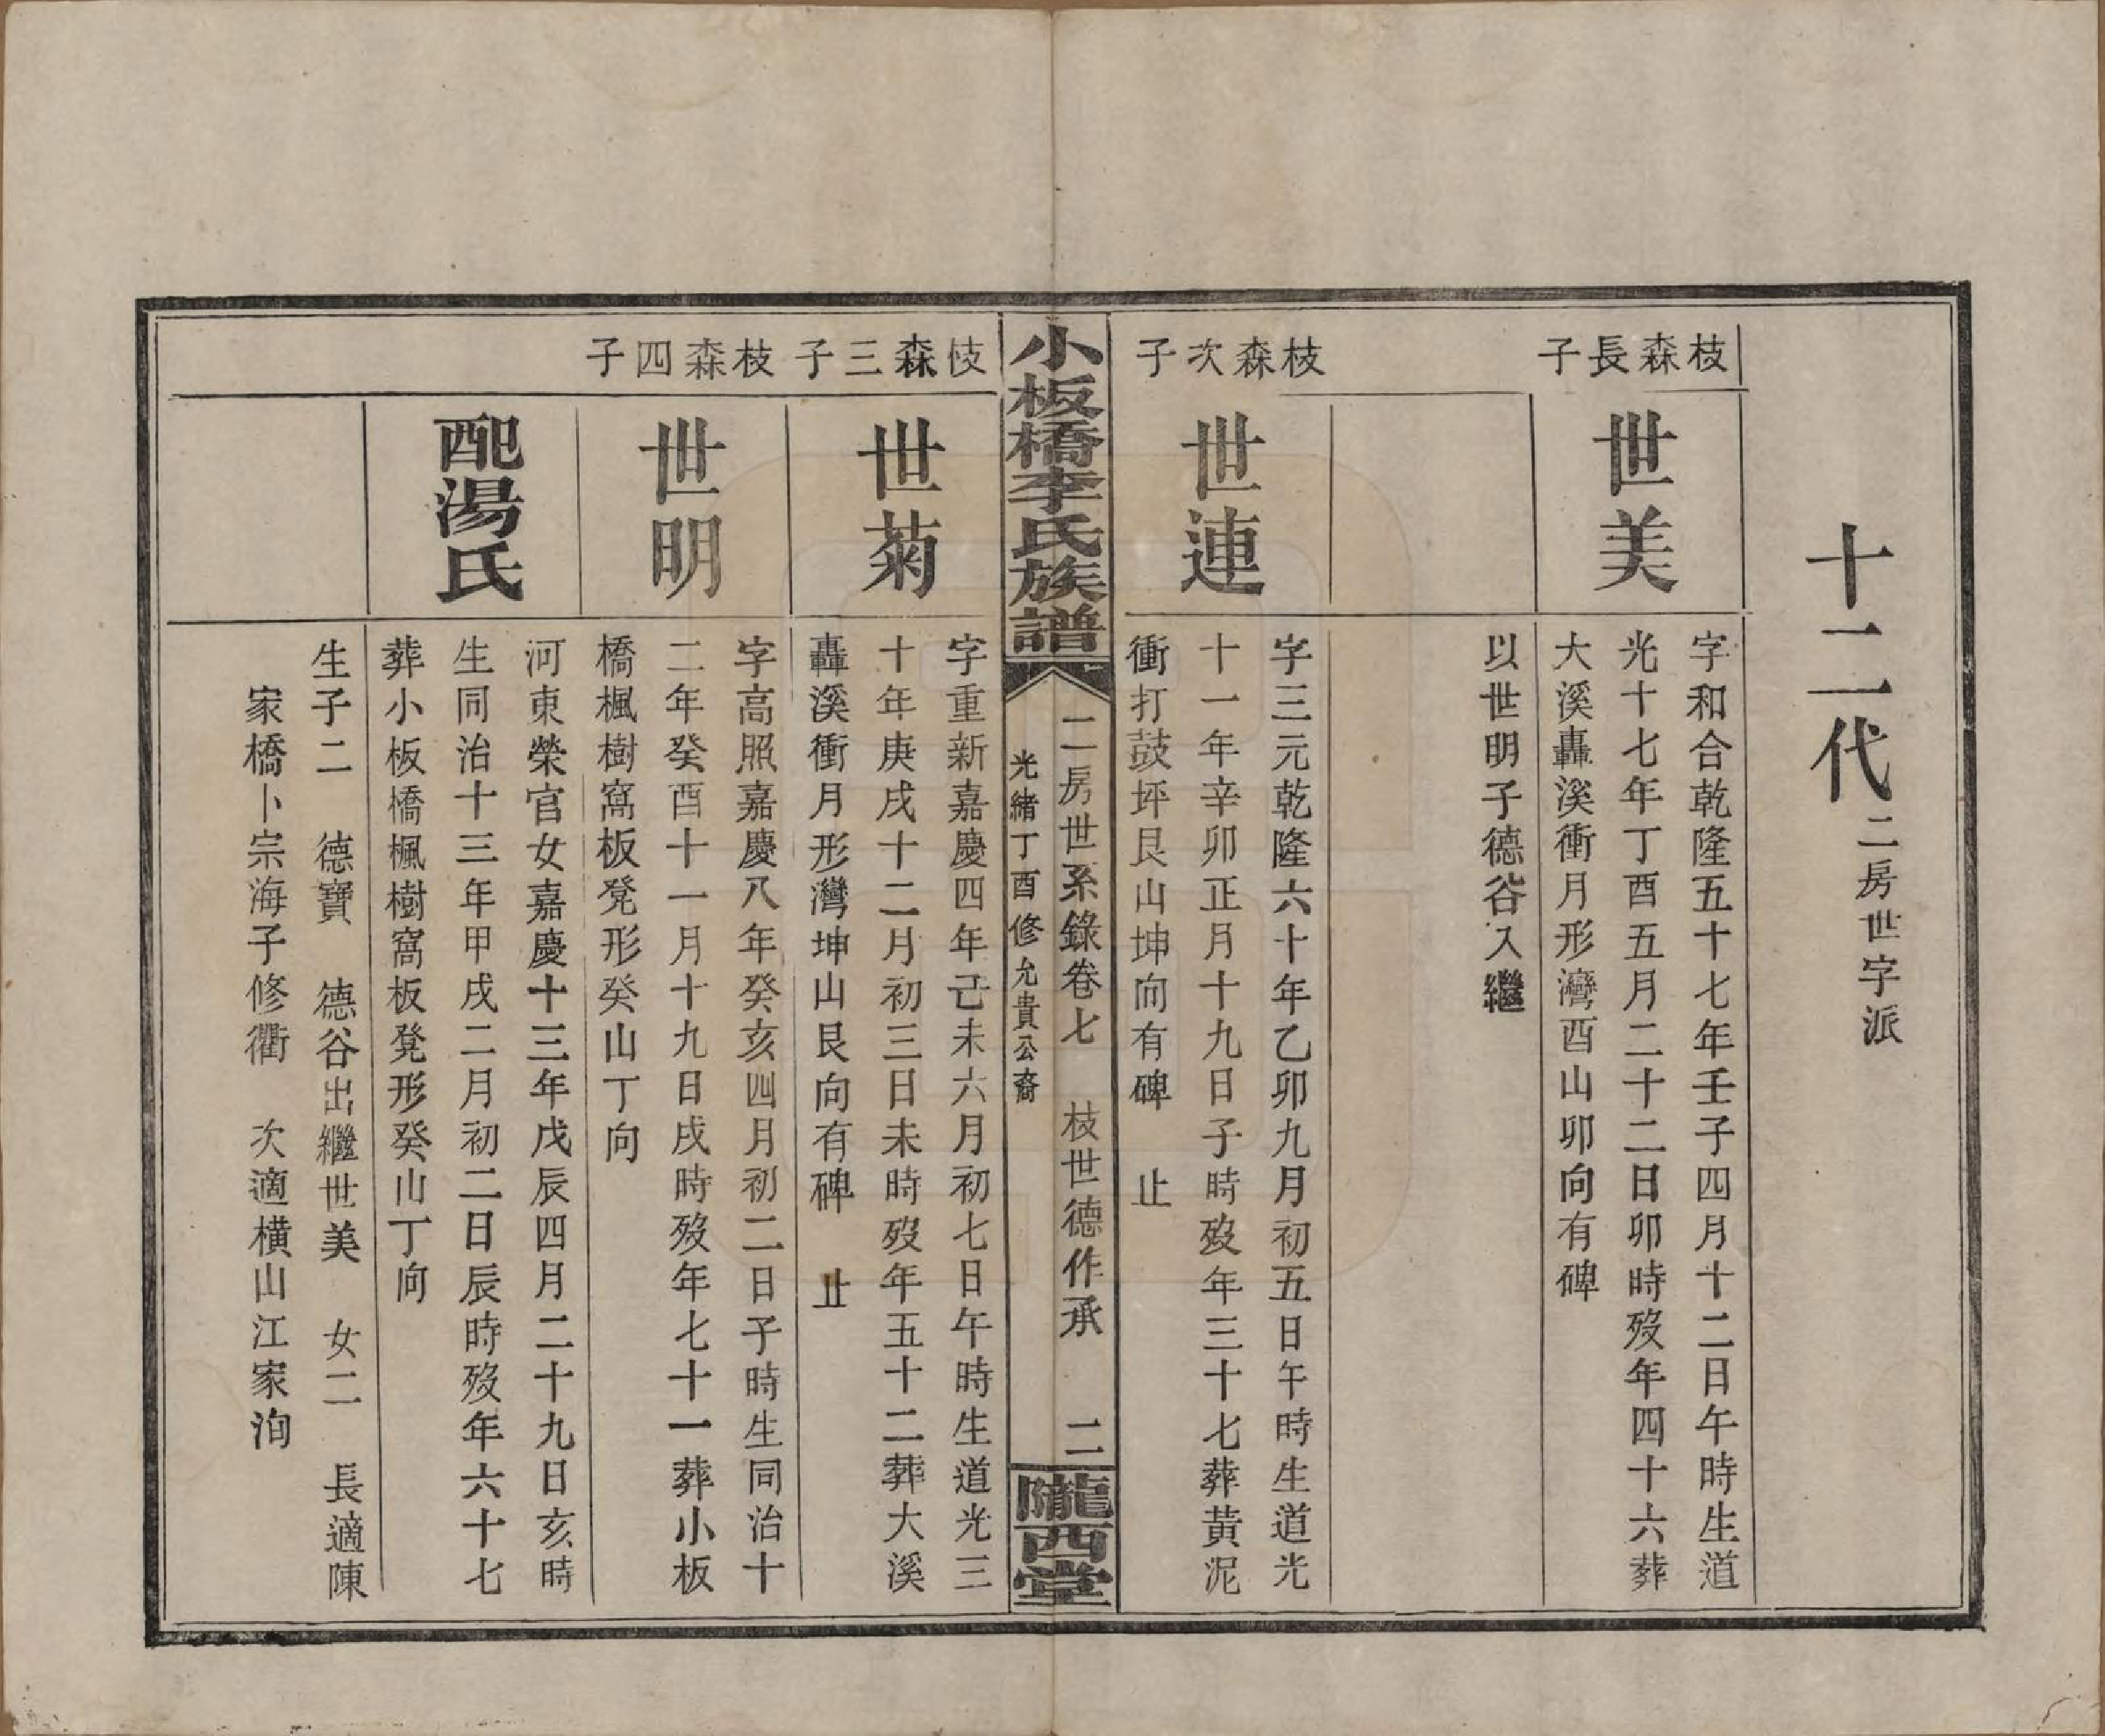 十二代二房世字派
枝森長子
世美
字和合乾隆五十七年壬子四月十二日午時生道
光十七年丁酉五月二十二日卯時歿年四十六葬
大溪轟溪衝月形灣酉山卯向有碑
以世明子德谷入繼
枝森次子
世連
字三元乾隆六十年乙卯九月初五日午時生道光
十一年辛卯正月十九日子時歿年三十七葬黃泥
衝打鼓坪艮山坤向有碑 止
小板橋李氏族譜
二房世系錄卷七 枝世德作承 二
光緒丁酉修允貴公裔
隴西堂
枝森三子
世菊
字重新嘉慶四年己未六月初七日午時生道光三
十年庚戌十二月初三日未時歿年五十二葬大溪
轟溪衝月形灣坤山艮向有碑 止
枝森四子
世明
字高照嘉慶八年癸亥四月初二日子時生同治十
二年癸酉十一月十九日戌時歿年七十一葬小板
橋楓樹窩板凳形癸山丁向
配湯氏
河東榮官女嘉慶十三年戊辰四月二十九日亥時
生同治十三年甲戌二月初二日辰時歿年六十七
葬小板橋楓樹窩板凳形癸山丁向
生子二 德寶 德谷出繼世美 女二 長適陳
家橋卜宗海子修衢 次適橫山江家洵